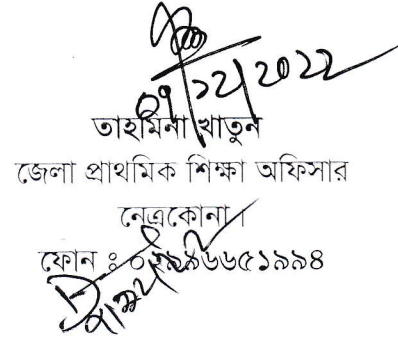 ০৭/১২/২০২২
তাহমিনা খাতুন
জেলা প্রাথমিক শিক্ষা অফিসার
নেত্রকোনা।
ফোন ঃ ০২৯৯৬৬৫১৯৯৪